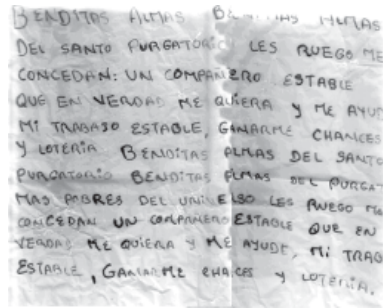 BENDITAS ALMAS BENDITAS ALMAS
DEL SANTO PURGATORIO LES RUEGO ME
CONCEDAN: UN COMPAÑERO ESTABLE
QUE EN VERDAD ME QUIERA Y ME AYUD
MI TRABAJO ESTABLE, GANARME CHANCES
Y LOTERIA BENDITAS ALMAS DEL SANTO
PURGATORIO BENDITAS ALMAS DEL PURGAT
MAS POBRES DEL UNIVERSO LES RUEGO ME
CONCEDAN UN COMPAÑERO ESTABLE QUE EN
VERDAD ME QUIERA Y ME AYUDE, MI TRAB
ESTABLE, GANARME CHANCES Y LOTERIA.